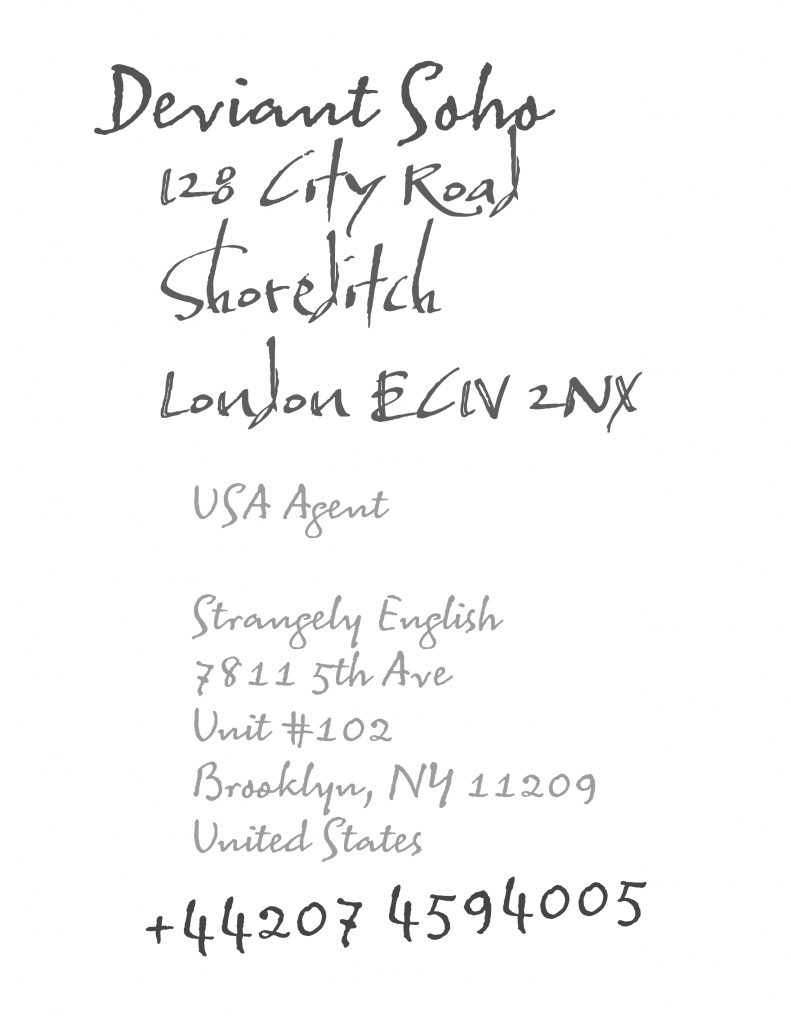 Deviant Soho
128 City Road
Shoreditch
London EC1V 2NX
USA Agent
Strangely English
7811 5th Ave
Unit #102
Brooklyn, NY 11209
United States
+44207 4594005